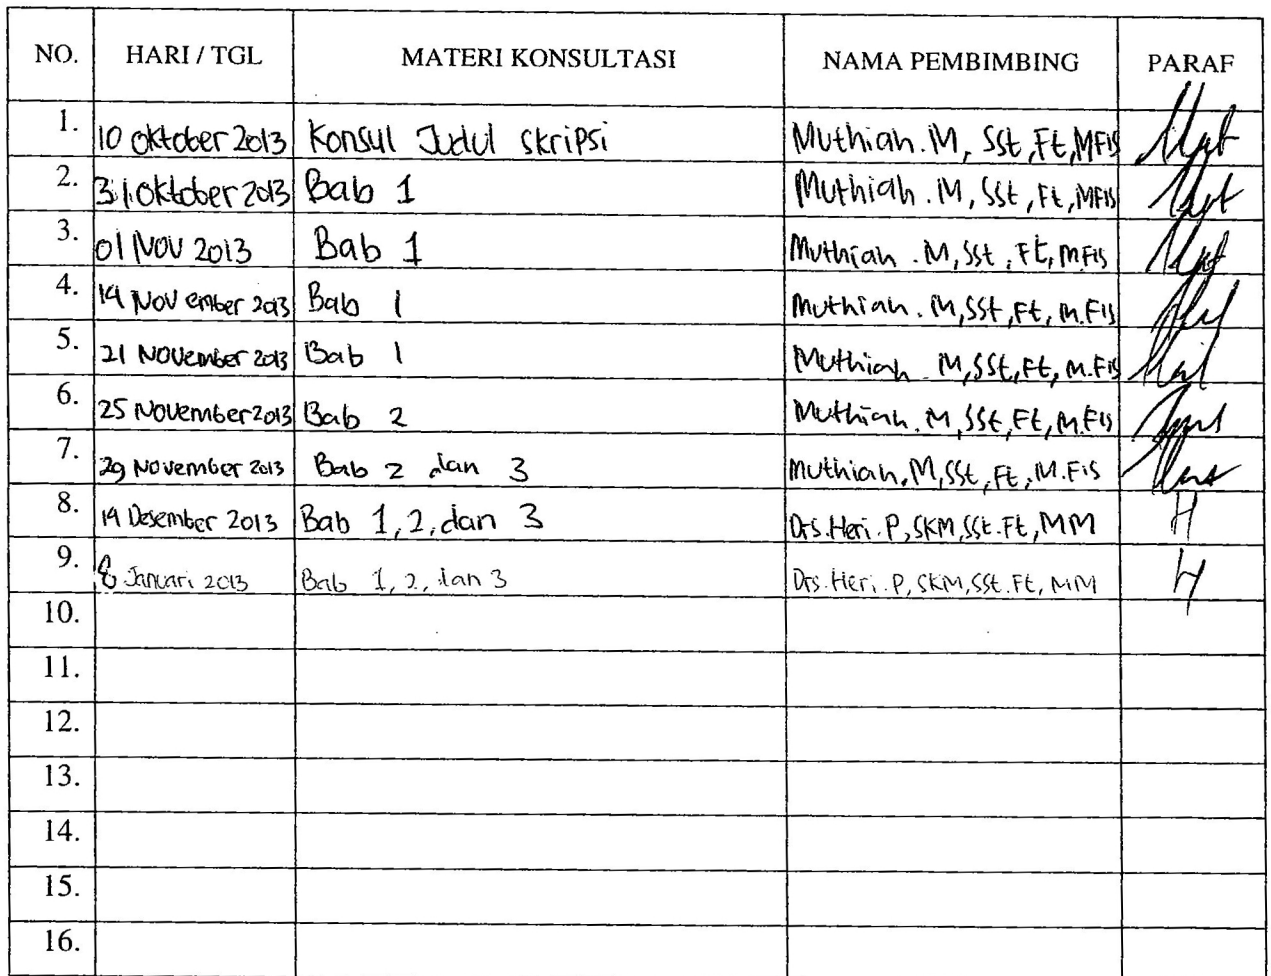 NO. HARI / TGL MATERI KONSULTASI NAMA PEMBIMBING PARAF
1. 10 Oktober 2013 Konsul Judul Skripsi Muthiah. M, SSt, Ft, MFis
2. 31 Oktober 2013 Bab 1 Muthiah. M, SSt, Ft, MFis
3. 01 Nov 2013 Bab 1 Muthiah. M, SSt, Ft, M.Fis
4. 14 November 2013 Bab 1 Muthiah. M, SSt, Ft, M.Fis
5. 21 November 2013 Bab 1 Muthiah M, SSt, Ft, M.Fis
6. 25 November 2013 Bab 2 Muthiah. M, SSt, Ft, M.Fis
7. 29 November 2013 Bab 2 dan 3 Muthiah. M, SSt, Ft, M.Fis
8. 14 Desember 2013 Bab 1, 2, dan 3 Drs. Heri. P, SKM, SSt. Ft, MM H
9. 8 Januari 2013 Bab 1, 2, dan 3 Drs. Heri. P, SKM, SSt. Ft, MM H
10.
11.
12.
13.
14.
15.
16.